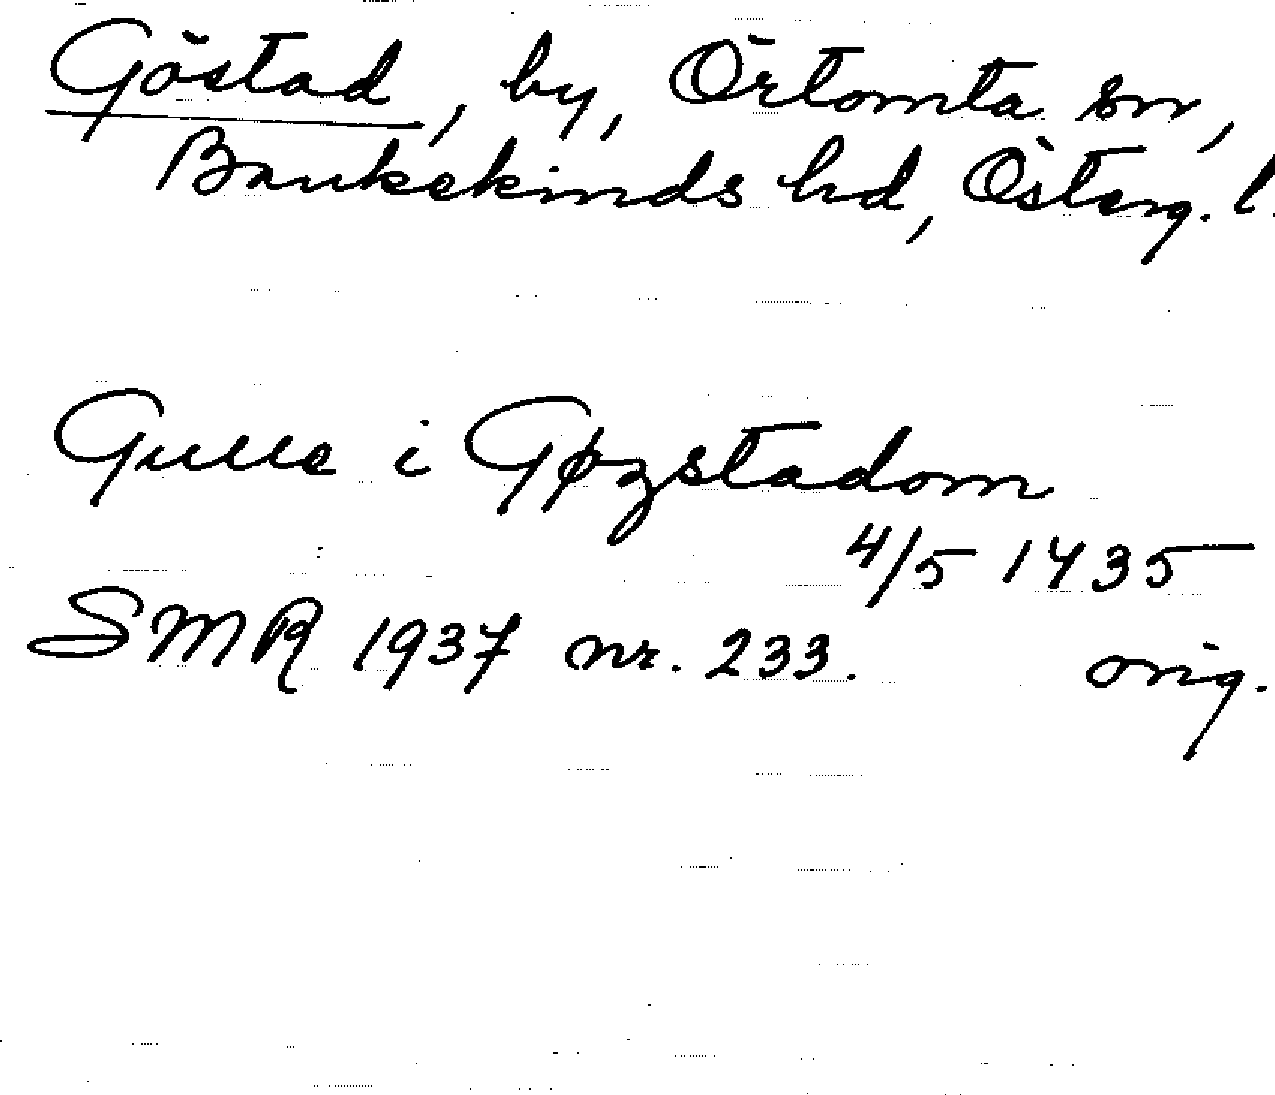 Göstad, by, Örtomta sn,
Bankekinds hd, Österg. l.
Gulle i Gøzstadom
4/5 1435
SMR 1937 nr. 233. orig.